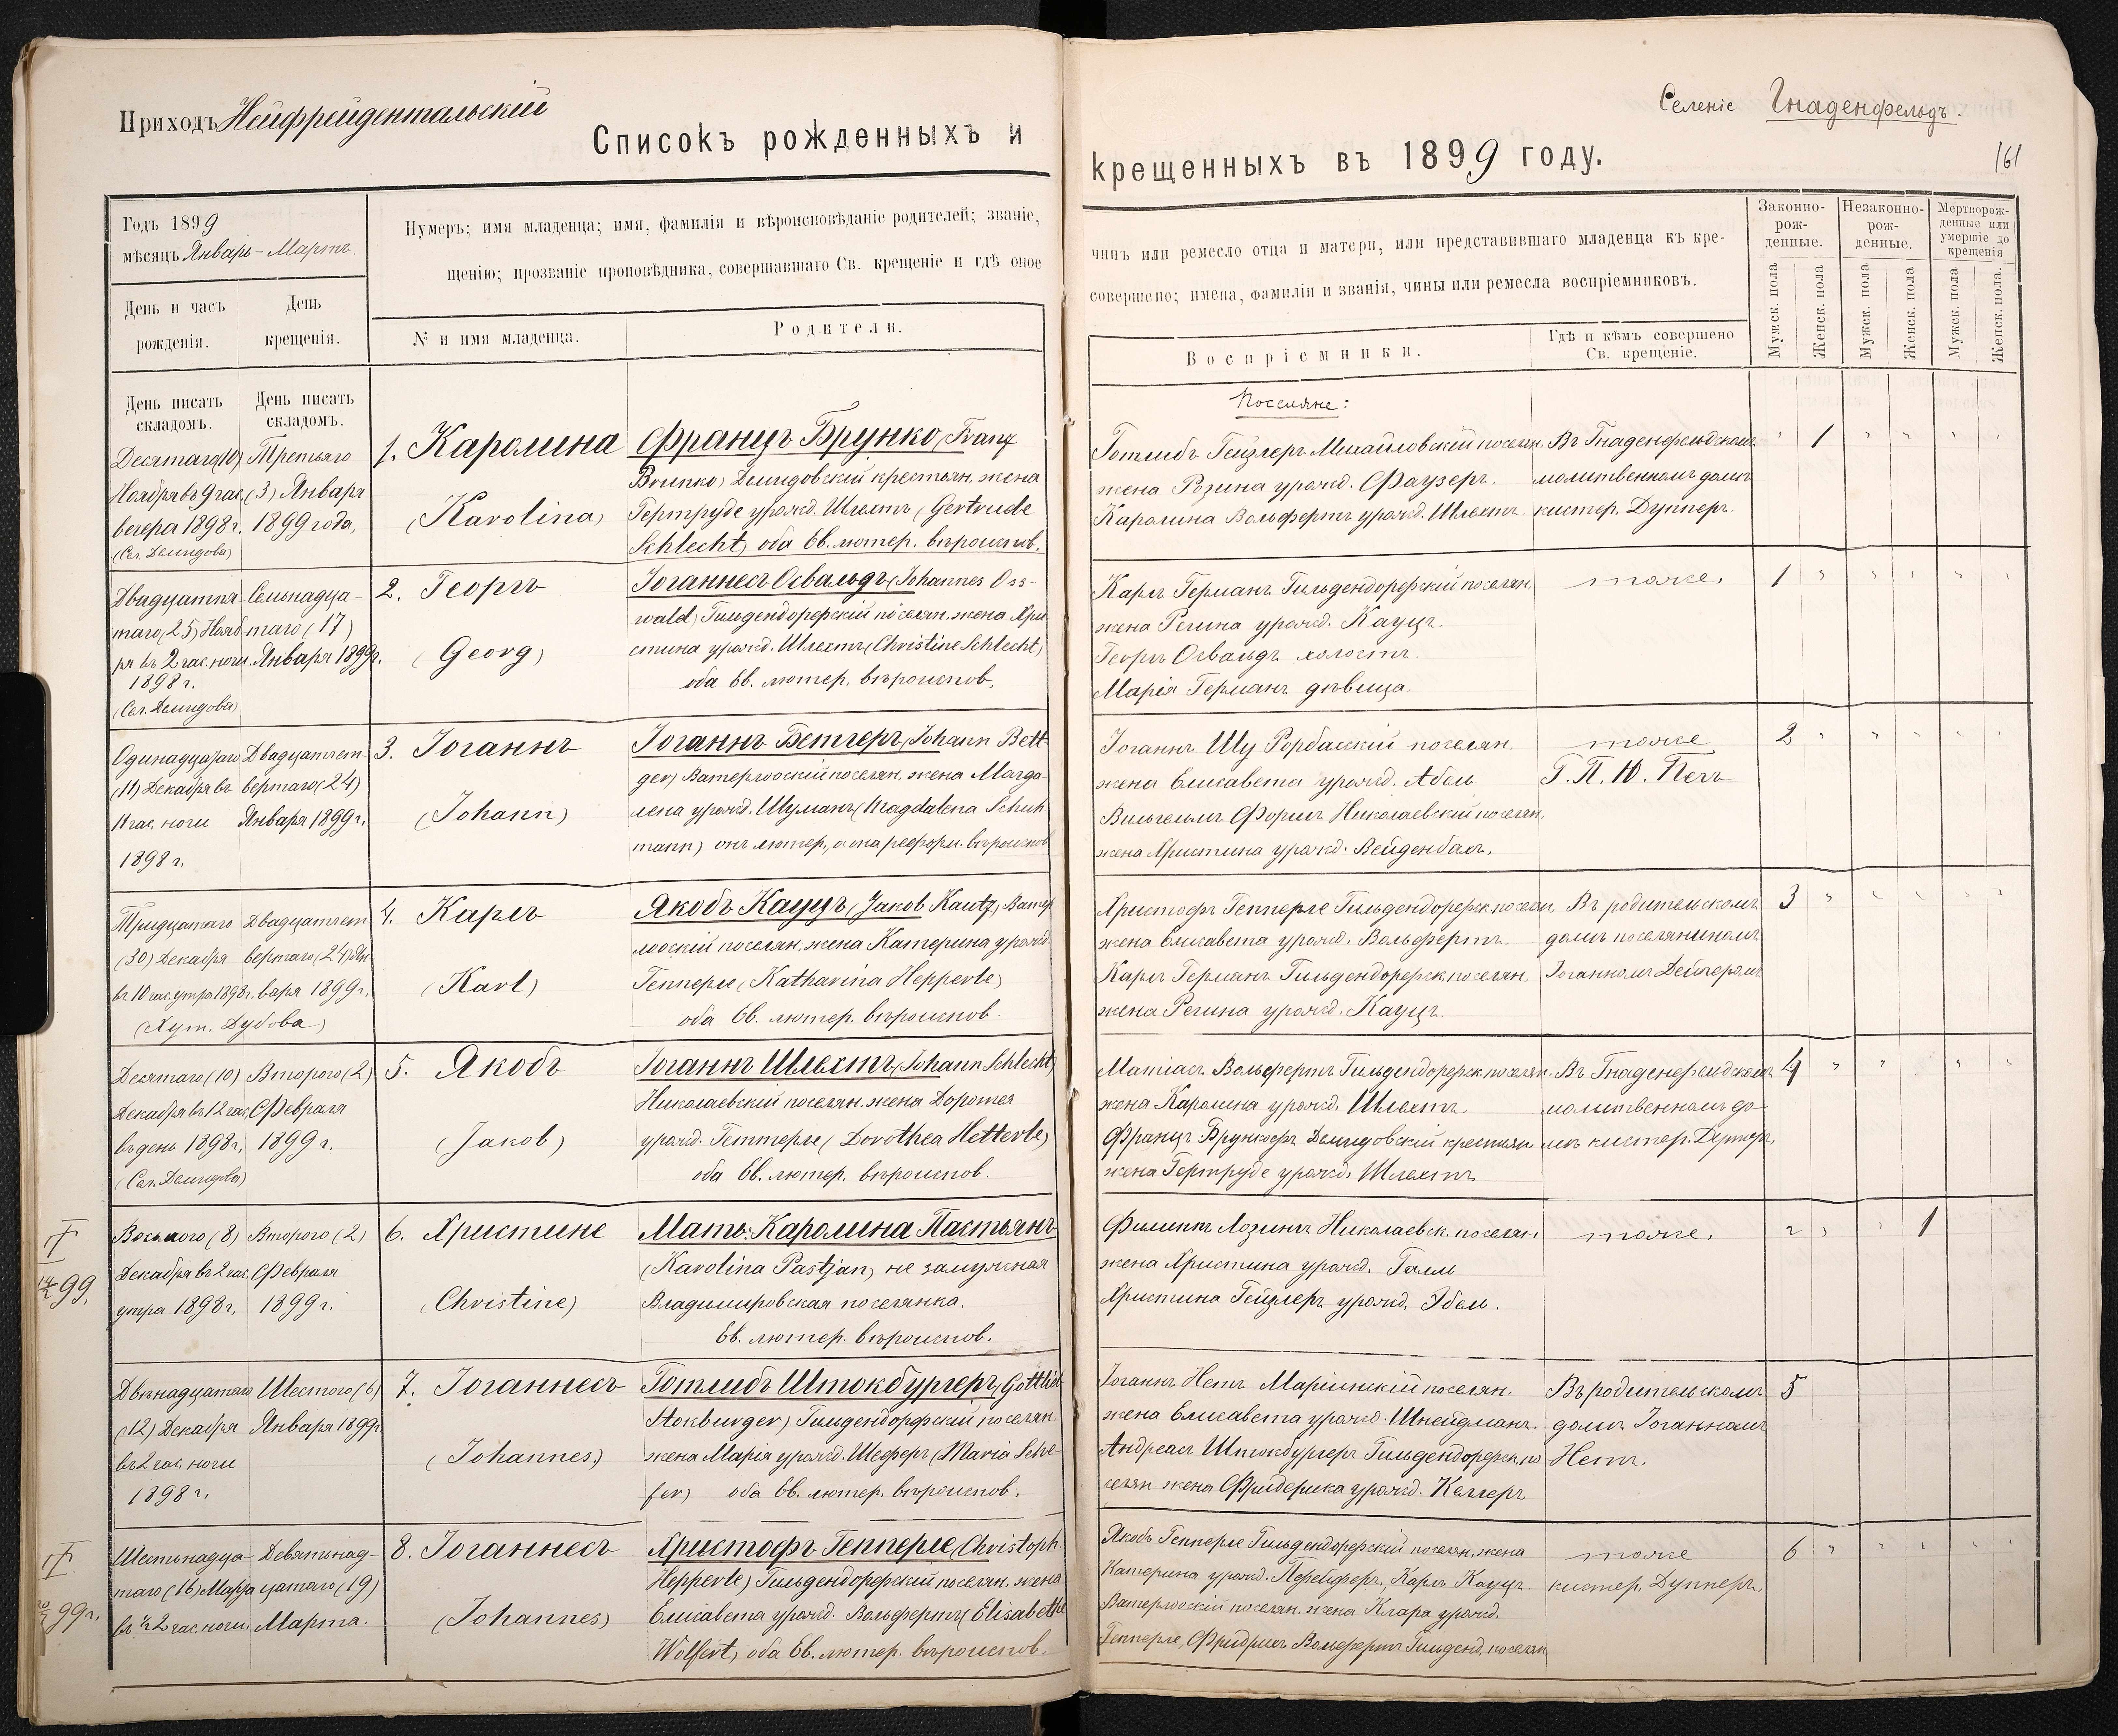 Приходъ Нейфрейдентальскій
Списокъ рожденныхъ и
Годъ 1899
мѣсяцъ Январь - Мартъ.
Нумеръ; имя младенца; имя, фамилія и вѣроисповѣданіе родителей; званіе,
щенію; прозваніе проповѣдника, совершавшаго Св. крещеніе и гдѣ оное
День и часъ
рожденія.
День
крещенія.
№ и имя младенца.
Родители.
День писать
складомъ.
День писать
складомъ.
Десятаго (10)
Ноября въ 9 час.
вечера 1898 г.
(Сел. Демидова)
Третьяго
(3) Января
1899 года,
1. Каролина
(Karolina)
Францъ Брунко (Franz
Brunko) Демидовскій крестьян. жена
Гертруде урожд. Шлехтъ (Gertrude
Schlecht) оба Ев. лютер. вѣроиспов.
Двадцатпя-
таго (25) Нояб
ря въ 2 час. ночи.
1898 г.
(Сел. Демидова)
Семьнадца-
таго (17)
Января 1899г.
2. Георгъ
(Georg)
Іоганнесъ Освальдъ (Johannes Oss-
wald) Гильдендорфскій поселян. жена Хри
стина урожд. Шлехтъ (Christine Schlecht)
оба Ев. лютер. вѣроиспов.
Одинадцатаго
(11) Декабря въ
11 час. ночи
1898 г.
Двадцатчет-
вертаго (24)
Января 1899г.
3. Іоганнъ
(Johann)
Іоганнъ Бетгеръ (Johann Bett
ger) Ватерлооскій поселян. жена Магда
лена урожд. Шуманъ (Magdalena Schuh
mann) онъ лютер., а она реформ. вѣроиспов
Тридцатаго
(30) Декабря
въ 10 час. утра 1898г.
(Хут. Дубова)
Двадцатчет
вертаго (24) Ян-
варя 1899г.
4. Карлъ
(Karl)
Якобъ Кауцъ (Jakob Kautz) Ватер
лооскій поселян. жена Катерина урожд.
Гепперле (Katharina Hepperle)
оба Ев. лютер. вѣроиспов.
Десятаго (10)
Декабря въ 12 час.
въ день 1898г.
(Сел. Демидова)
Второго (2)
Февраля
1899 г.
5. Якобъ
(Jakob)
Іоганнъ Шлехтъ (Johann Schlecht)
Николаевскій поселян. жена Доротея
урожд. Геттерле (Dorothea Hetterle)
оба Ев. лютер. вѣроиспов.
99.
Восьмого (8)
Декабря въ 2 час.
утра 1898 г.
Второго (2)
Февраля
1899 г.
6. Христине
(Christine)
Мать: Каролина Пастьянъ
(Karolina Pastjan) не замужная
Владимировская поселянка.
Ев. лютер. вѣроиспов.
Двѣнадцатаго
(12) Декабря
въ 2 час. ночи
1898 г.
Шестого (6)
Января 1899г.
7. Іоганнесъ
(Johannes)
Готлибъ Штокбургеръ (Gottlieb
Stokburger) Гильдендорфскій поселян.
жена Марія урожд. Шеферъ (Maria Sche-
fer) оба Ев. лютер. вѣроиспов.
99 г.
Шестьнадца-
таго (16) Марта
въ ½ 2 час. ночи.
Девятнад-
цатаго (19)
Марта.
8. Іоганнесъ
(Johannes)
Христофъ Гепперле (Christoph
Hepperle) Гильдендорфскій поселян. жена
Елисавета урожд. Вольфертъ (Elisabethe
Wolfert) оба Ев. лютер. вѣроиспов.
Селеніе Гнаденфельдъ.
161
крещенныхъ въ 1899 году.
чинъ или ремесло отца и матери, или представившаго младенца къ кре-
совершено; имена, фамиліи и званія, чины или ремесла воспріемниковъ.
Воспріемники.
Гдѣ и кѣмъ совершено
Св. крещеніе.
Законно-
рож-
денные.
Незаконно-
рож-
денные.
Мертворож-
денные или
умершіе до
крещенія
Мужск. пола
Женск. пола
Мужск. пола
Женск. пола
Мужск. пола
Женск. пола.
Поселяне:
Готлибъ Гейзлеръ Михайловскій поселян.
жена Розина урожд. Фаузеръ.
Каролина Вольфертъ урожд. Шлехтъ.
Въ Гнаденфельдскомъ
молитвенномъ домѣ
кистер. Дупперъ.
1
Карлъ Германъ Гильдендорфскій поселян.
жена Регина урожд. Кауцъ.
Георгъ Освальдъ холостъ.
Марія Германъ дѣвица.
тоже.
1
Іоганнъ Шу Рорбахскій поселян.
жена Елисавета урожд. Абель
Вильгельмъ Форшъ Николаевскій поселян.
жена Христина урожд. Вейденбахъ.
тоже
Г. П. Ю. Пехъ
2
Христофъ Гепперле Гильдендорфск. поселян.
жена Елисавета урожд. Вольфертъ.
Карлъ Германъ Гильдендорфск. поселян.
жена Регина урожд. Кауцъ.
Въ родительскомъ
домѣ поселяниномъ
Іоганномъ Дейгеромъ
3
Матіасъ Вольфертъ Гильдендорфск. поселян.
жена Каролина урожд. Шлехтъ.
Францъ Брункофъ Демидовскій крестьян.
жена Гертруде урожд. Шлехтъ
Въ Гнаденфельдскомъ
молитвенномъ до-
мѣ кистер. Дупперъ.
4
Филиппъ Лозингъ Николаевск. поселян.
жена Христина урожд. Галль
Христина Гейзлеръ урожд. Эбель.
тоже.
1
Іоганнъ Нетъ Маріинскій поселян.
жена Елисавета урожд. Шнейдманъ.
Андреасъ Штокбургеръ Гильдендорфск. по
селян. жена Фридерика урожд. Келлеръ
Въ родительскомъ
домѣ Іоганномъ
Нетъ.
5
Якобъ Гепперле Гильдендорфскій поселян. жена
Катерина урожд. Пфейферъ, Карлъ Кауцъ
Ватерлооскій поселян. жена Клара урожд.
Гепперле, Фридрихъ Вольфертъ Гильденд. поселян.
тоже
кистер. Дупперъ.
6